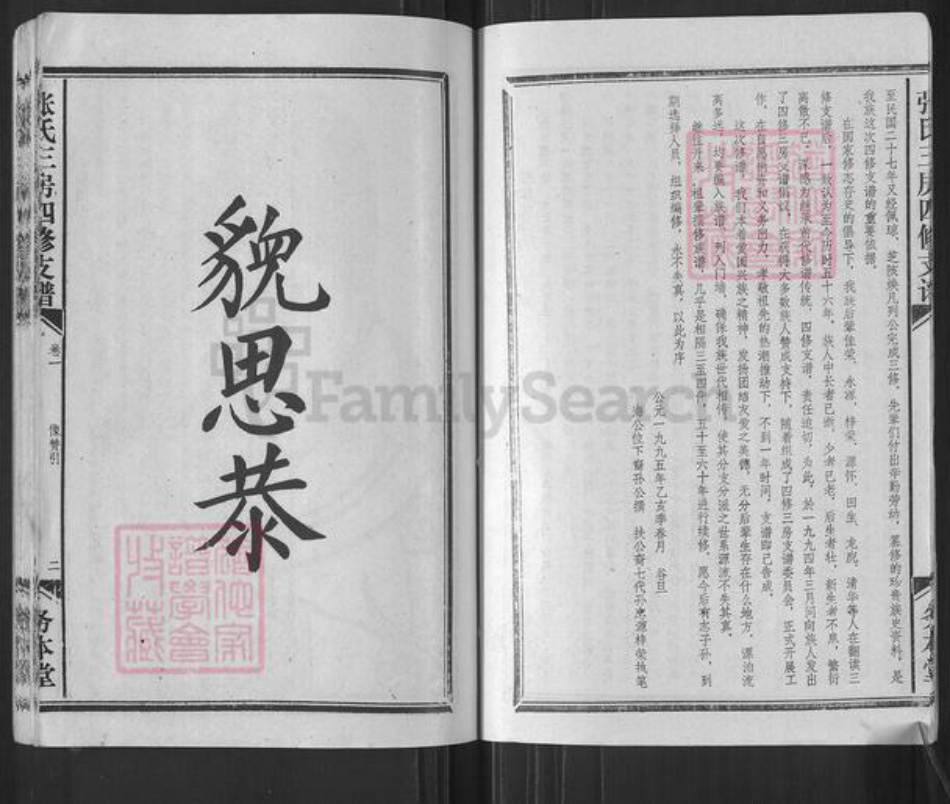 张氏三房四修支谱
务本堂
至民国二十七年又经佩球、芝陔焕几列公完成三修。先辈们付出辛勤劳纳，纂修的珍贵族史资料，是
我族这次四修支谱的重要依据。
在国家修志存史的倡导下，我族后辈佳荣、永源、梓荣、源怀、田生、龙虎、清华等人在翻读三
修支谱后，一致认为至今历时五十六年，族人中长者已逝，少者已老，后生者壮，新生者不息，繁衍
离散不已，深感为继承前代修谱传统，四修支谱，责任迫切。为此，於一九九四年三月间向族人发出
了四修三房支谱倡议，在获得大多数族人赞成支持下，随着组成了四修三房支谱委员会，正式开展工
作，在自愿捐资和义务出力，孝敬祖先的热潮推动下，不到一年时间，支谱即已告成。
这次修谱，我们本着爱国兴族之精神，发扬团结友爱之美德，无分后辈生存在什么地方，源泊流
离多远，均要汇入族谱，列入门墙，确保我族世代相传，使其分支分派之世系源流不失其真。
继往开来，祖辈续修族谱，几乎是相隔三至四代，五十至六十年进行续修，愿今后有志子孙，到
期选择人员，组织编修，永不失真。以此为序
公元一九九五年乙亥季春月 谷旦
海公位下裔孙公撰 扶公裔七代孙忠源梓荣执笔
张氏三房四修支谱
卷一
像赞引
二
务本堂
貌思恭
FamilySearch